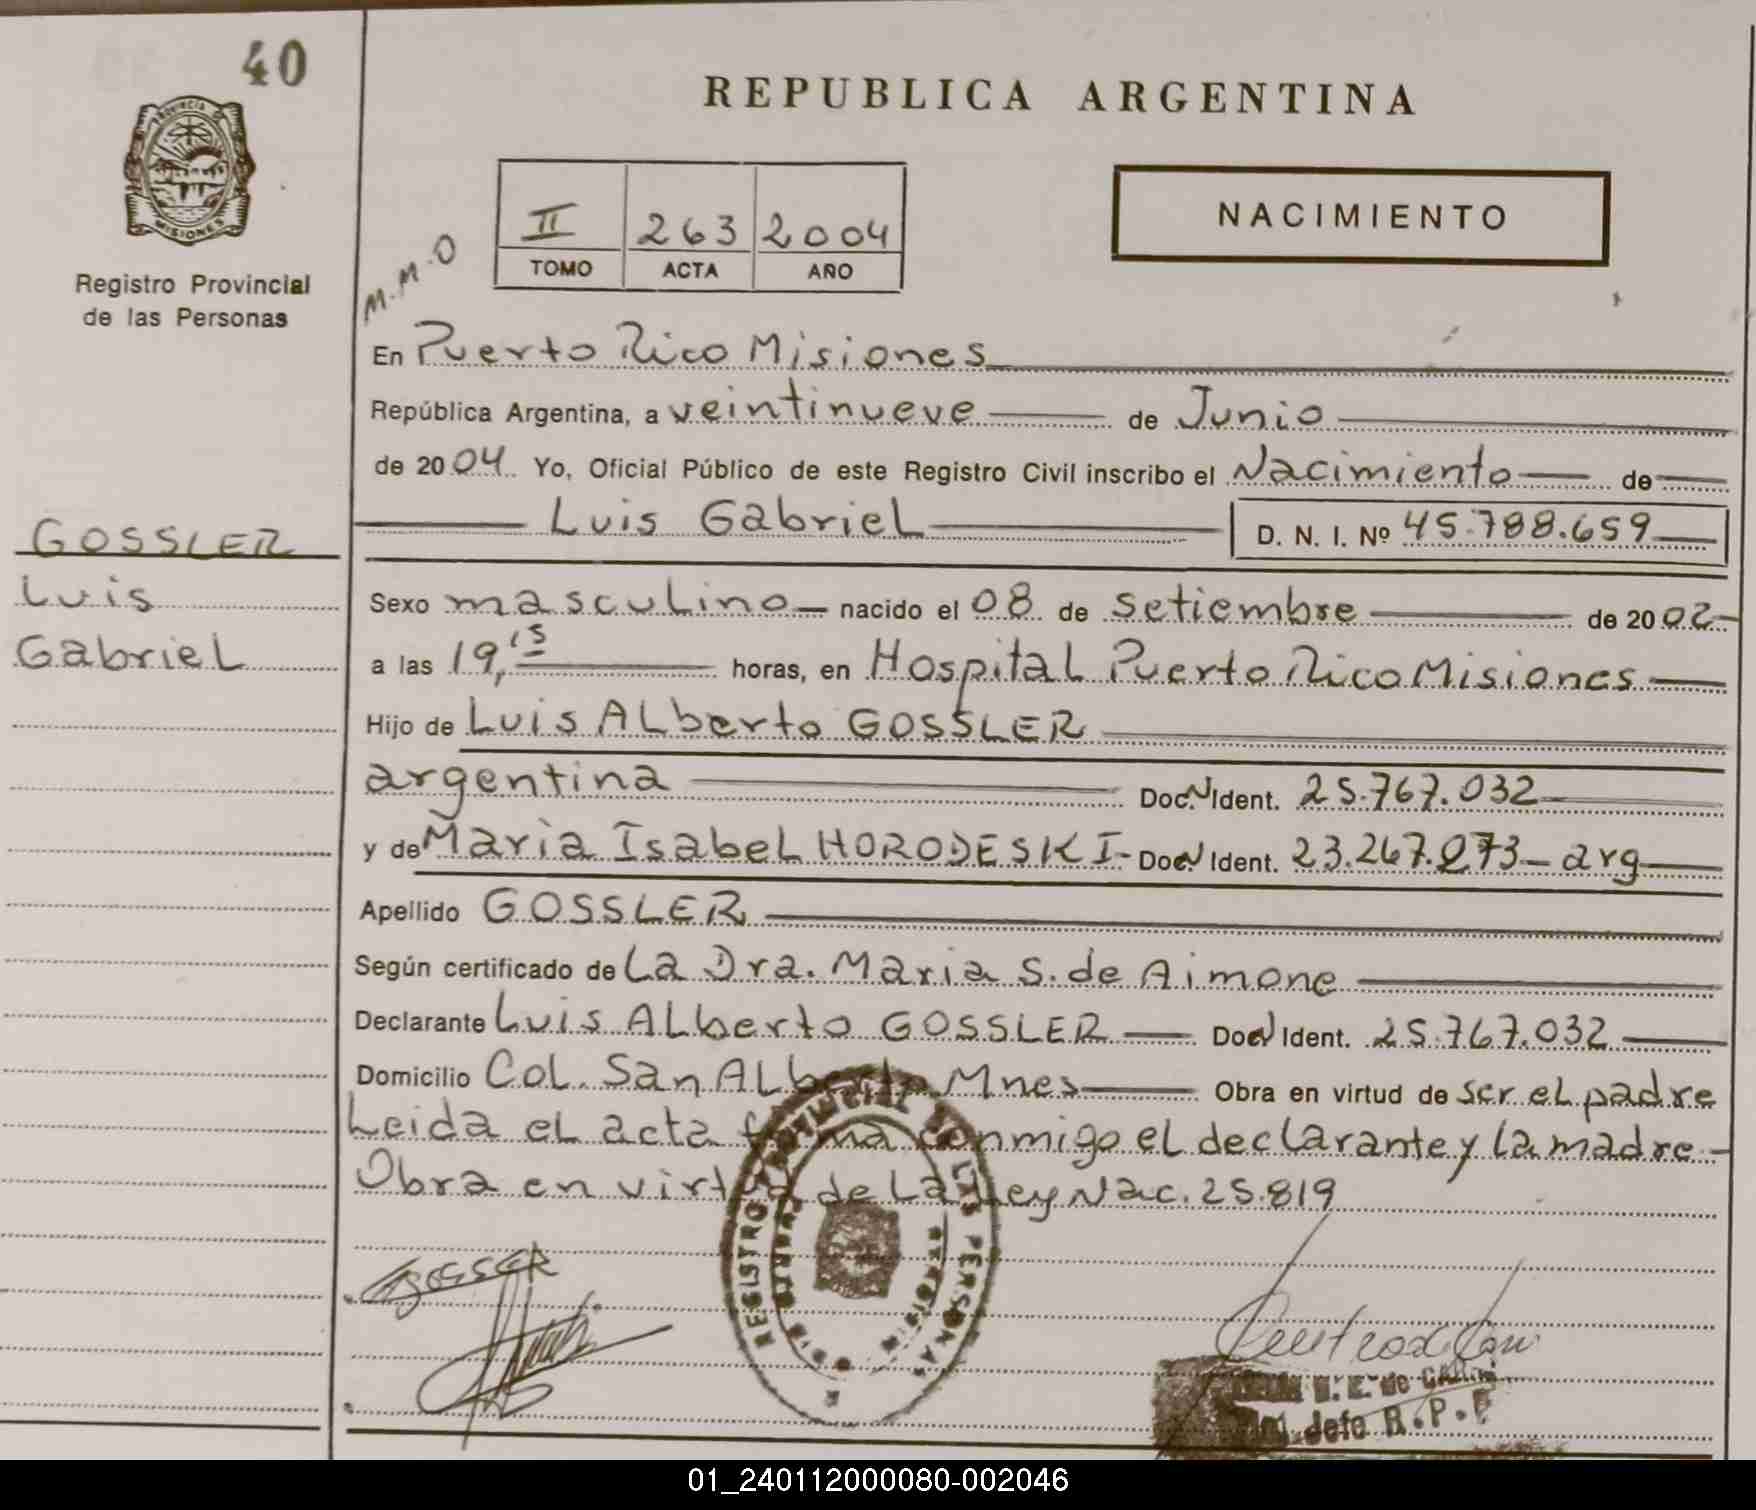 40
REPUBLICA ARGENTINA
PROVINCIA
MISIONES
Registro Provincial
de las Personas
M.M.O
II 263 2004
TOMO ACTA AÑO
NACIMIENTO
En Puerto Rico Misiones
República Argentina, a veintinueve de Junio
de 2004 Yo, Oficial Público de este Registro Civil inscribo el Nacimiento de
Luis Gabriel D. N. I. Nº 45.788.659
GOSSLER
Luis
Gabriel
Sexo masculino nacido el 08 de Setiembre de 2002
a las 19,15 horas, en Hospital Puerto Rico Misiones
Hijo de Luis Alberto GOSSLER
argentina Doc. N Ident. 25.767.032
y de Maria Isabel HORODESKI - Doc. N Ident. 23.267.273 - arg
Apellido GOSSLER
Según certificado de La Dra. Maria S. de Aimone
Declarante Luis Alberto GOSSLER Doc. N Ident. 25.767.032
Domicilio Col. San Alberto Mnes Obra en virtud de ser el padre
Leida el acta firma conmigo el declarante y la madre -
Obra en virtud de La Ley Nac. 25.819
REGISTRO PROVINCIAL DE LAS PERSONAS
GOSSLER
E. de
Jefe R.P.P
01_240112000080-002046